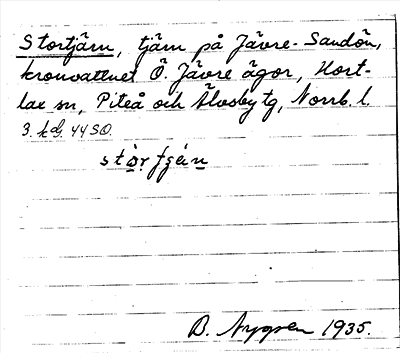 Stortjärn, tjärn på Jävre-Sandön,
kronvattnet Ö. Jävre ägor, Hort-
lax sn, Piteå och Älvsby tg, Norrb. l.
3. kbl. 44 SO.
B. Nygren 1935.